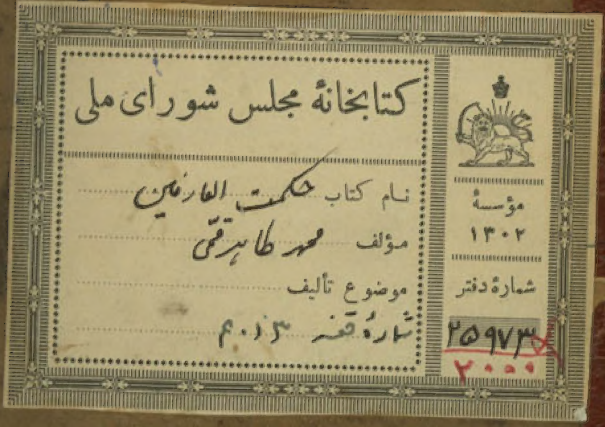 کتابخانهٔ مجلس شورای ملی
نام کتاب حکمت العارفین
مؤلف محمد طاهر قمی
موضوع تألیف
شمارهٔ قفسه
مؤسسهٔ
۱۳۰۲
شمارهٔ دفتر
۲۵۹۷۳
۲۰۰۰